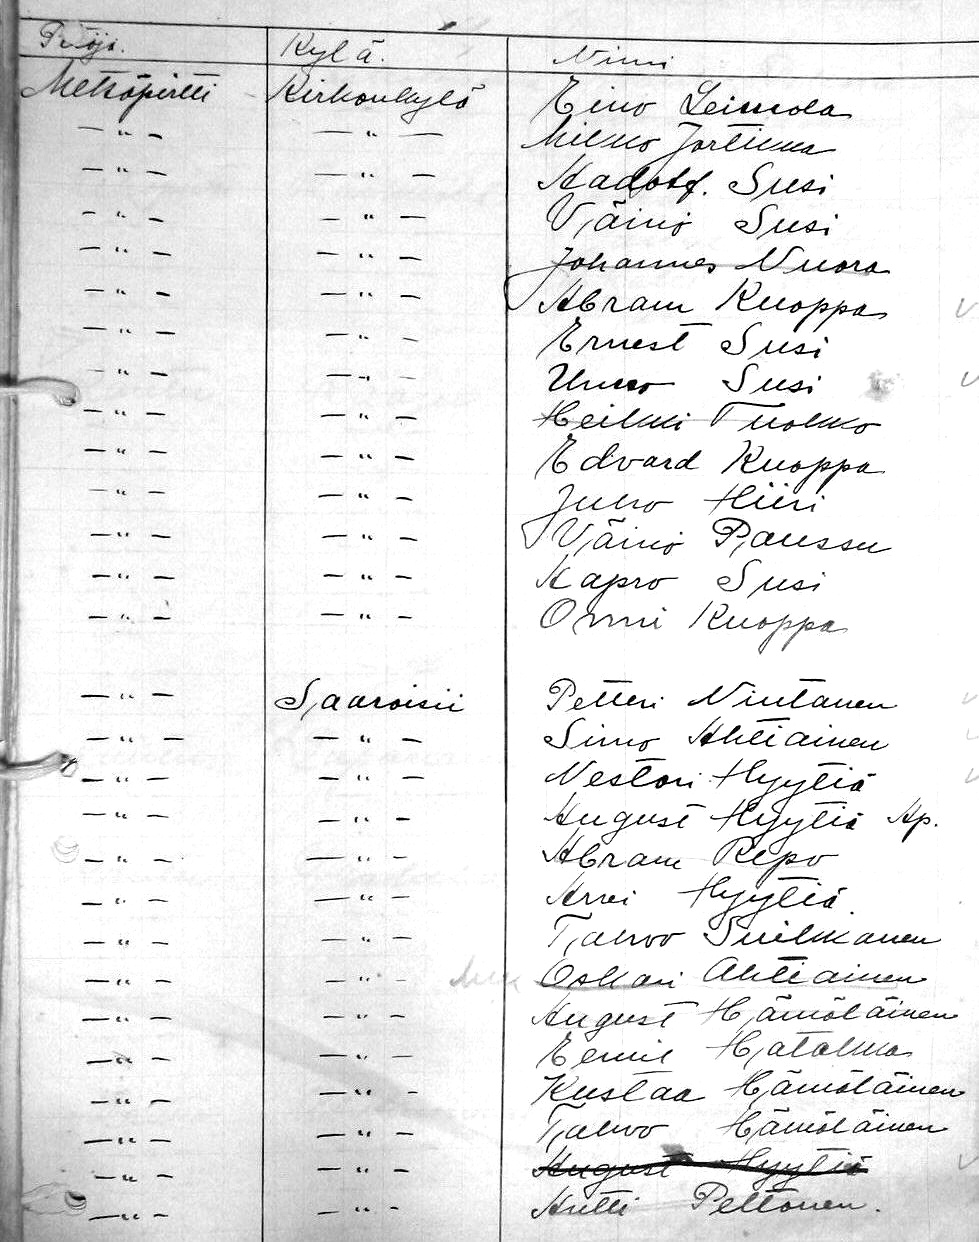 Pitäjä. Kylä. Nimi
Metsäpirtti - Kirkonkylä Eino Leimola
— " — — " — Mikko Jortikka
— " — — " — Aadolf. Susi
— " — — " — Väinö Susi
— " — — " — Johannes Nuora
— " — — " — Abram Kuoppa
— " — — " — Ernest Susi
— " — — " — Unto Susi
— " — — " — Heikki Tuokko
— " — — " — Edvard Kuoppa
— " — — " — Juho Hiiri
— " — — " — Väinö Paussu
— " — — " — Aapro Susi
— " — — " — Onni Kuoppa
— " — Saaroisii Petteri Niutanen
— " — — " — Simo Ahtiainen
— " — — " — Nestori Hyytiä
— " — — " — August Hyytiä Ap.
— " — — " — Abram Repo
— " — — " — Arvi Hyytiä
— " — — " — Tahvo Suikkanen
— " — — " — Oskari Ahtiainen
— " — — " — August Hämäläinen
— " — — " — Eemil Hatakka
— " — — " — Kustaa Hämäläinen
— " — — " — Tahvo Hämäläinen
— " — — " — August Hyytiä
— " — — " — Antti Peltonen.